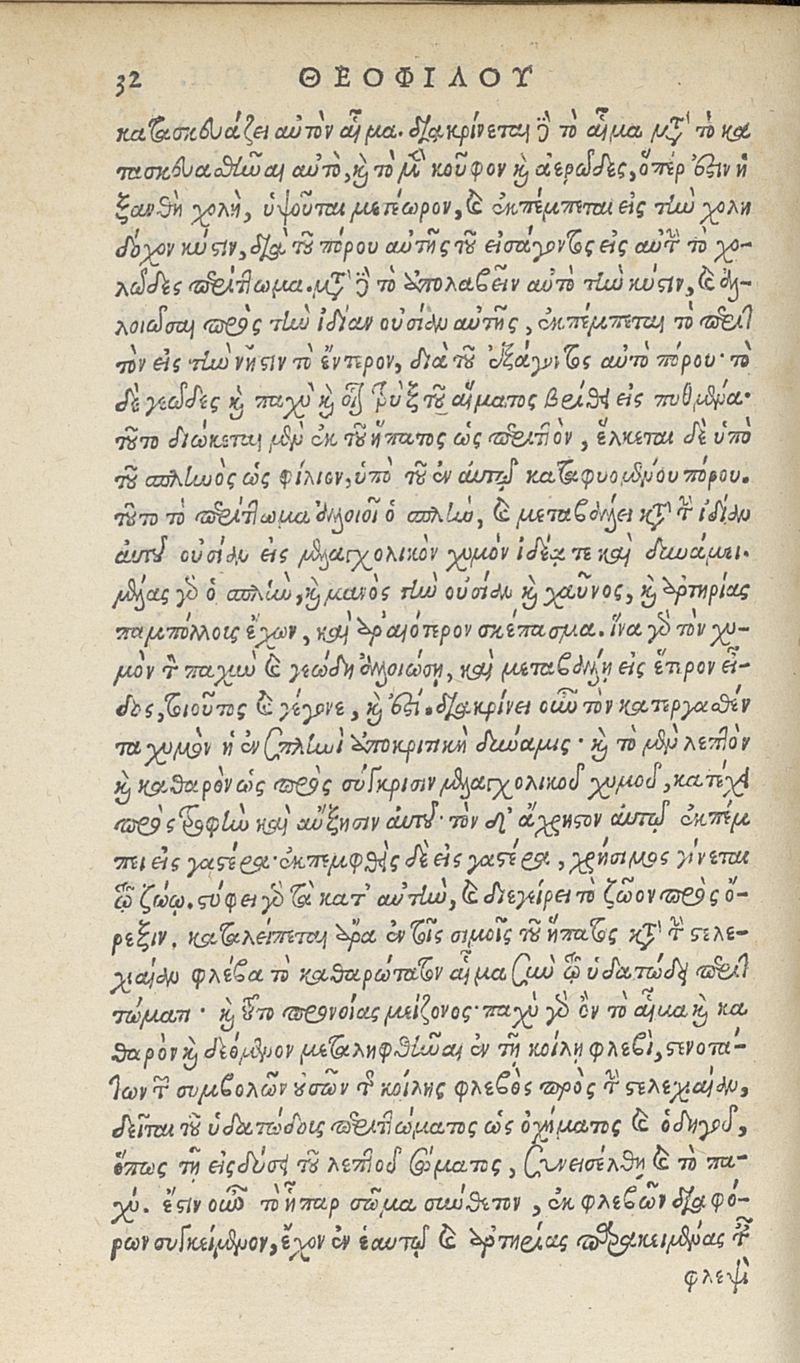 32 ΘΕΟΦΙΛΟΥ
κατασκευάζει αὐτὸν αἷμα. διακρίνεται δὲ τὸ αἷμα μετὰ τὸ κα
τασκευασθῆναι αὐτὸ, καὶ τὸ μὲν κοῦφον καὶ ἀερῶδες, ὅπέρ ἐστιν ἡ
ξανθὴ χολὴ, ὑψοῦται μετέωρον, καὶ ἐκπέμπεται εἰς τὴν χολη
δόχον κύστιν, διὰ τοῦ πόρου αὐτῆς τοῦ εἰσάγοντος εἰς αὐτὴν τὸ χο-
λῶδες περίττωμα. μετὰ δὲ τὸ ἀπολαβεῖν αὐτὸ τὴν κύστιν, καὶ ἀλ-
λοιῶσαι πρὸς τὴν ἰδίαν οὐσίαν αὐτῆς, ἐκπέμπεται τὸ περιτ
τὸν εἰς τὴν νῆστιν τὸ ἔντερον, διὰ τοῦ ἐξάγοντος αὐτὸ πόρου· τὸ
δὲ γεῶδες καὶ παχὺ καὶ οἷον τρὺξ τοῦ αἵματος βρίθει εἰς πυθμένα·
τοῦτο διώκεται μὲν ἐκ τοῦ ἥπατος ὡς περιττὸν, ἕλκεται δὲ ὑπὸ
τοῦ σπληνὸς ὡς φίλιον, ὑπὸ τοῦ ἐν αὐτῷ καταφυομένου πόρου.
τοῦτο τὸ περίττωμα ἀλλοιοῖ ὁ σπλὴν, καὶ μεταβάλλει κατὰ τὴν ἰδίαν
αὐτοῦ οὐσίαν εἰς μελαγχολικὸν χυμὸν ἰδέᾳ τε καὶ δυνάμει.
μέλας γὰρ ὁ σπλὴν, καὶ μανὸς τὴν οὐσίαν καὶ χαῦνος, καὶ ἀρτηρίας
παμπόλλοις ἔχων, καὶ ἀραιότερον σκέπασμα. ἵνα γὰρ τὸν χυ-
μὸν τὸν παχὺν καὶ γεώδη ἀλλοιώσῃ, καὶ μεταβάλλῃ εἰς ἕτερον εἶ-
δος, τοιοῦτος καὶ γέγονε, καὶ ἐστί. διακρίνει οὖν τὸν κατεργασθέν
τα χυμὸν ἡ ἐν σπληνὶ ἀποκριτικὴ δύναμις· καὶ τὸ μὲν λεπτὸν
καὶ καθαρὸν ὡς πρὸς σύγκρισιν μελαγχολικοῦ χυμοῦ, κατέχει
πρὸς τροφὴν καὶ αὔξησιν αὐτοῦ· τὸν δ' ἄχρηστον αὐτῷ ἐκπέμ
πει εἰς γαστέρα· ἐκπεμφθεὶς δὲ εἰς γαστέρα, χρήσιμος γίνεται
τῷ ζώῳ. στύφει γὰρ τὰ κατ' αὐτὴν, καὶ διεγείρει τὸ ζῶον πρὸς ὄ-
ρεξιν. καταλείπεται ἄρα ἐν τοῖς σιμοῖς τοῦ ἥπατος κατὰ τὴν στελε-
χιαίαν φλέβα τὸ καθαρώτατον αἷμα σὺν τῷ ὑδατώδει περιτ
τώματι· καὶ τοῦτο προνοίας μείζονος· παχὺ γὰρ ὂν τὸ αἷμα καὶ κα
θαρὸν καὶ δεόμενον μεταληφθῆναι ἐν τῇ κοίλῃ φλεβὶ, στενοτά-
των τῶν συμβολῶν οὐσῶν τῆς κοίλης φλεβὸς πρὸς τὴν στελεχιαίαν,
δεῖται τοῦ ὑδατώδους περιττώματος ὡς ὀχήματος καὶ ὁδηγοῦ,
ὅπως τῇ εἰσδύσει τοῦ λεπτοῦ σώματος, συνεισέλθῃ καὶ τὸ πα-
χύ. ἔστιν οὖν τὸ ἧπαρ σῶμα σύνθετον, ἐκ φλεβῶν διαφό-
ρων συγκείμενον, ἔχον ἐν ἑαυτῷ καὶ ἀρτηρίας παρακειμένας ταῖς
φλεψὶ